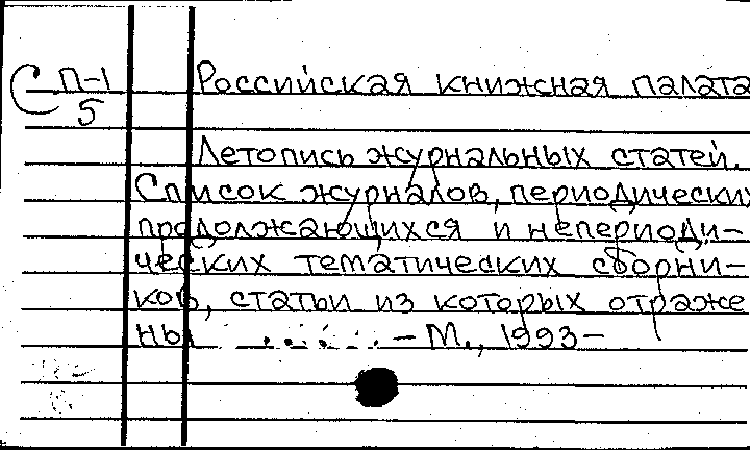 С П-1 Российская книжная палата
5
Летопись журнальных статей.
Список журналов, периодических
продолжающихся и непериоди-
ческих тематических сборни-
ков, статьи из которых отраже
ны - М., 1993-